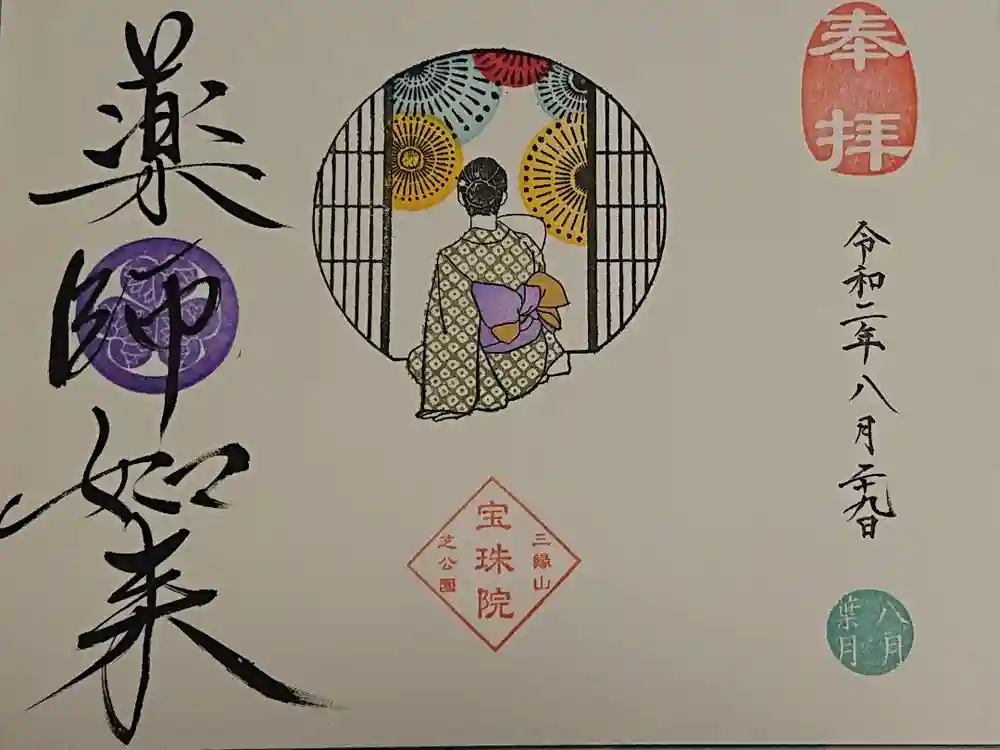 奉拝
令和二年八月二十九日
八月
葉月
三縁山
宝珠院
芝公園
薬師如来